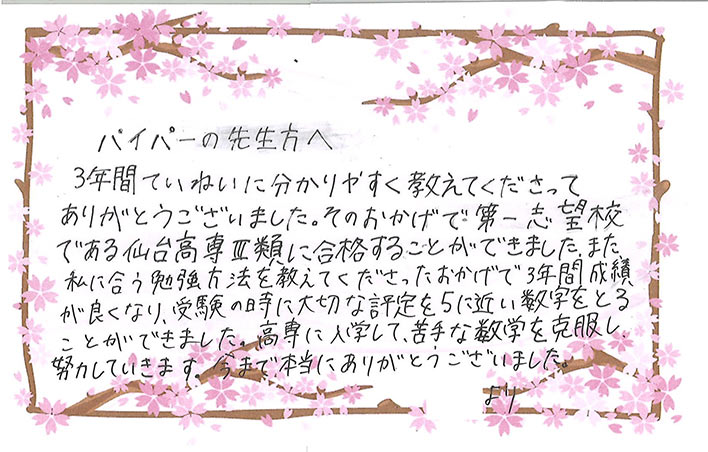 パイパーの先生方へ
3年間ていねいに分かりやすく教えてくださって
ありがとうございました。そのおかげで第一志望校
である仙台高専Ⅲ類に合格することができました。また、
私に合う勉強方法を教えてくださったおかげで3年間成績
が良くなり、受験の時に大切な評定を5に近い数字をとる
ことができました。高専に入学して、苦手な数学を克服し
努力していきます。今まで本当にありがとうございました。
より